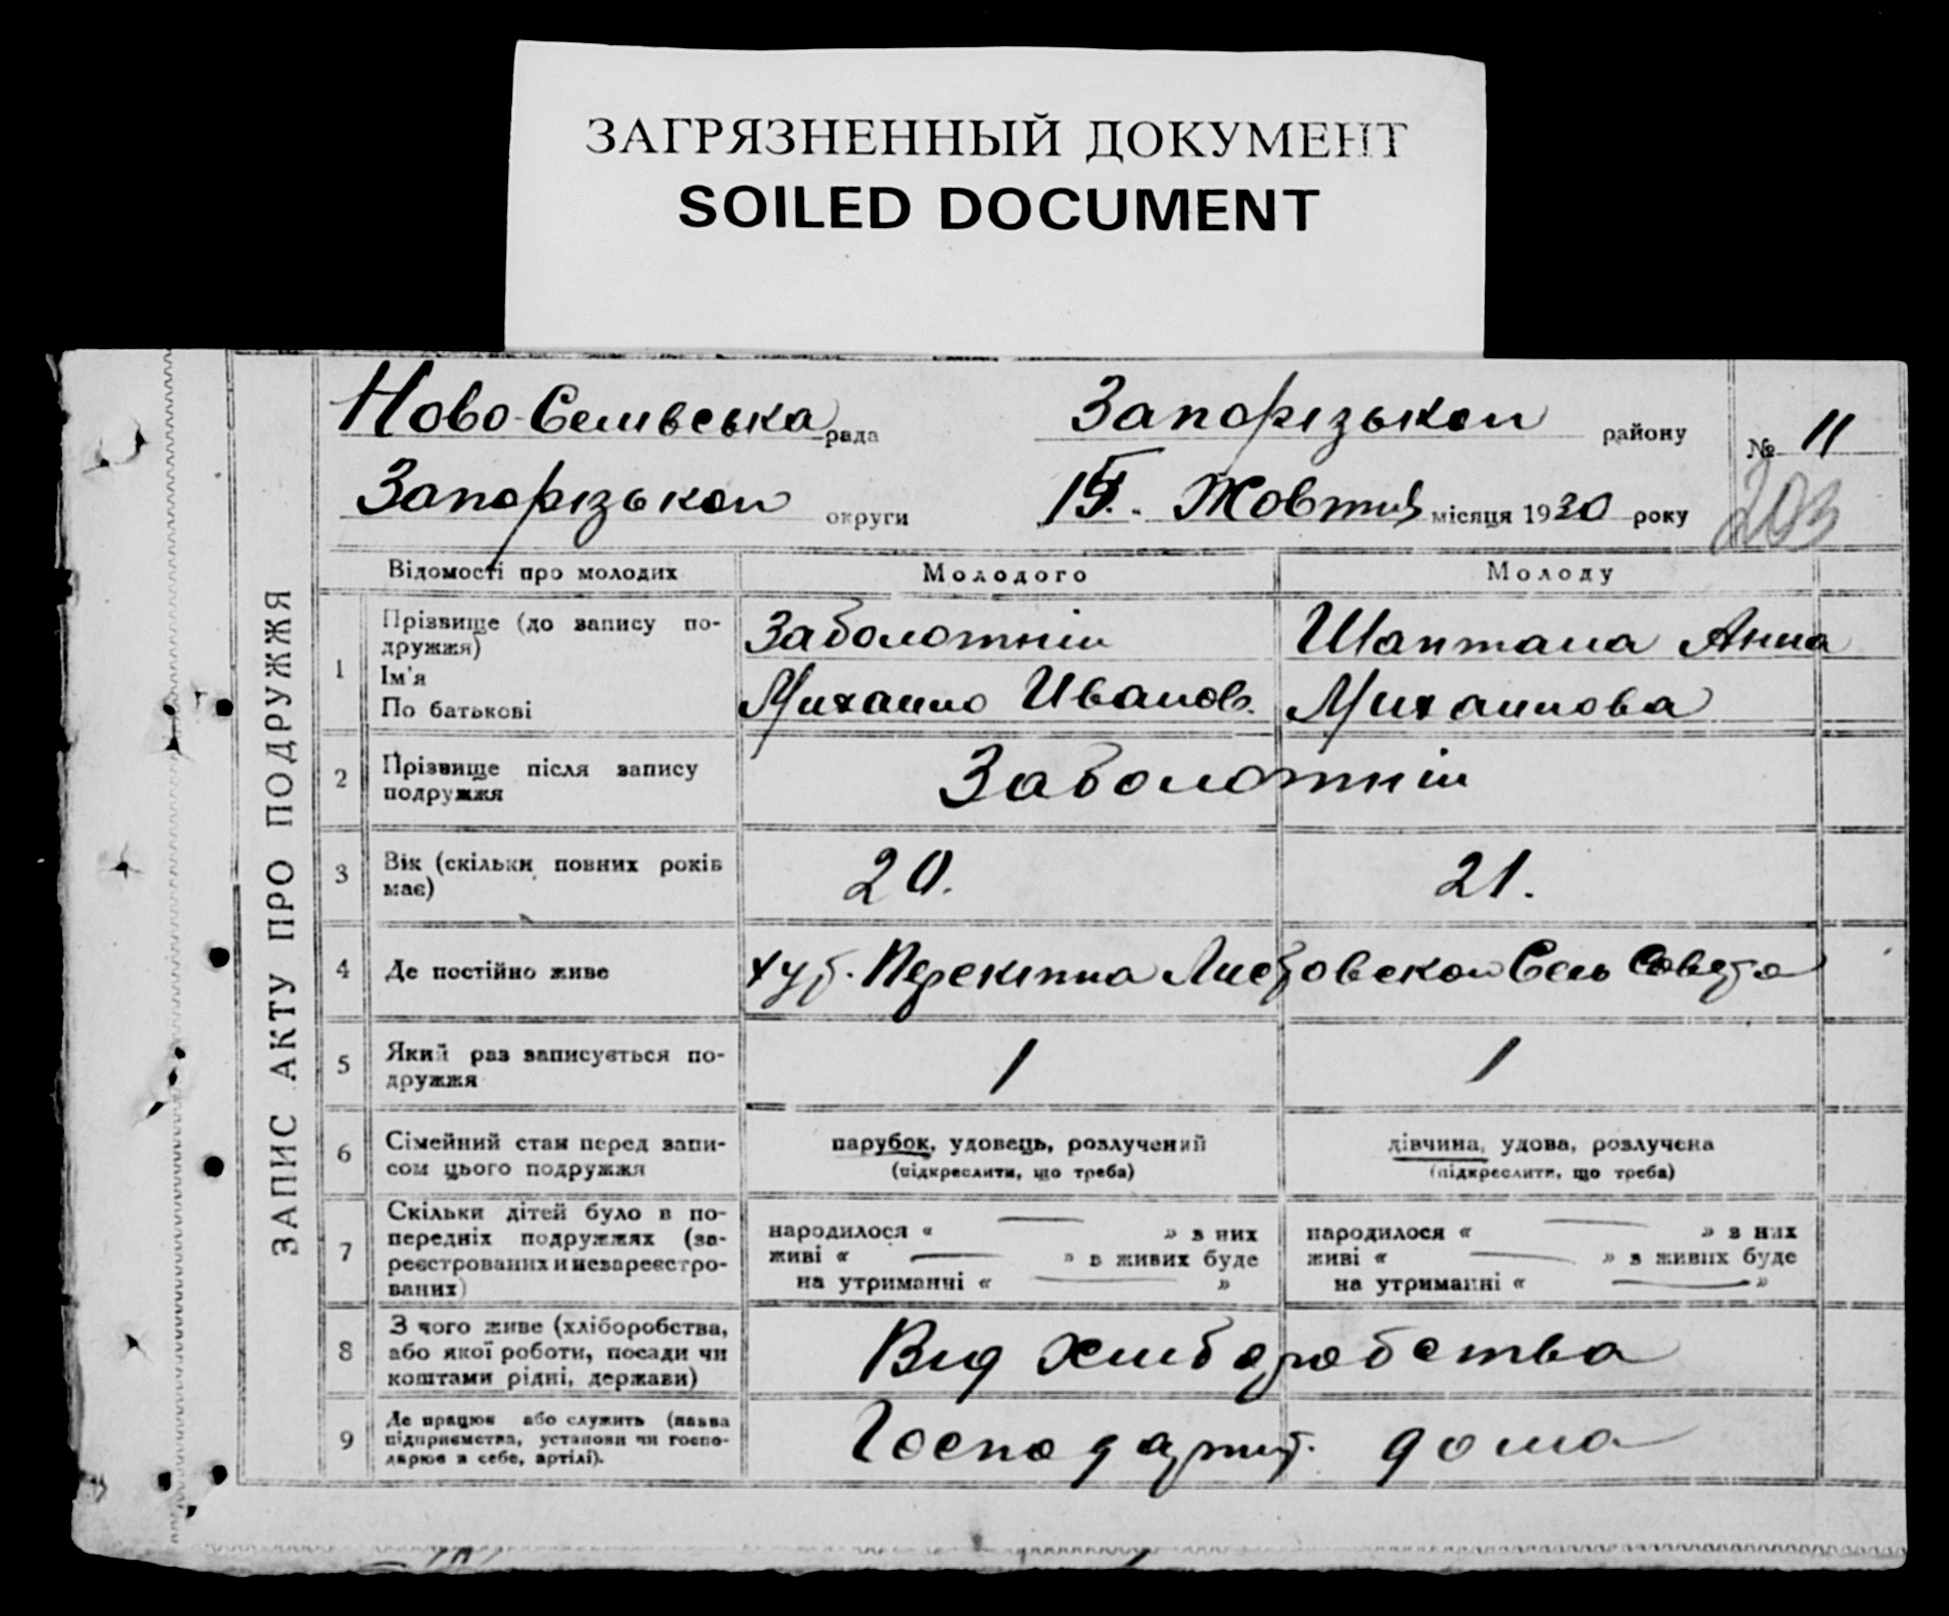 ЗАГРЯЗНЕННЫЙ ДОКУМЕНТ
SOILED DOCUMENT
ЗАПИС АКТУ ПРО ПОДРУЖЖЯ
Ново-Селивська рада Запорізькои району № 11
Запорізькои округи 15. Жовтня місяця 1930 року 203
Відомості про молодих Молодого Молоду
1 Прізвище (до запису по-
дружжя)
Ім'я
По батькові
Заболотній
Михаило Иванов.
Шаптала Анна
Михаилова
2 Прізвище після запису
подружжя
Заболотній
3 Вік (скільки повних років
має)
20. 21.
4 Де постійно живе
хут. Сель Совета
5 Який раз записується по-
дружжя
1 1
6 Сімейний стан перед запи-
сом цього подружжя
парубок, удовець, розлучений
(підкреслити, що треба)
дівчина, удова, розлучена
(підкреслити, що треба)
7 Скільки дітей було в по-
передніх подружжях (за-
реєстрованих и незареєстро-
ваних)
народилося « » з них
живі « » з живих буде
на утриманні « »
народилося « » з них
живі « » з живих буде
на утриманні « »
8 З чого живе (хліборобства,
або якої роботи, посади чи
коштами рідні, держави)
Вид Хлиборобства
9 Де працює або служить (назва
підприємства, установи чи госпо-
дарює в себе, артілі).
дома